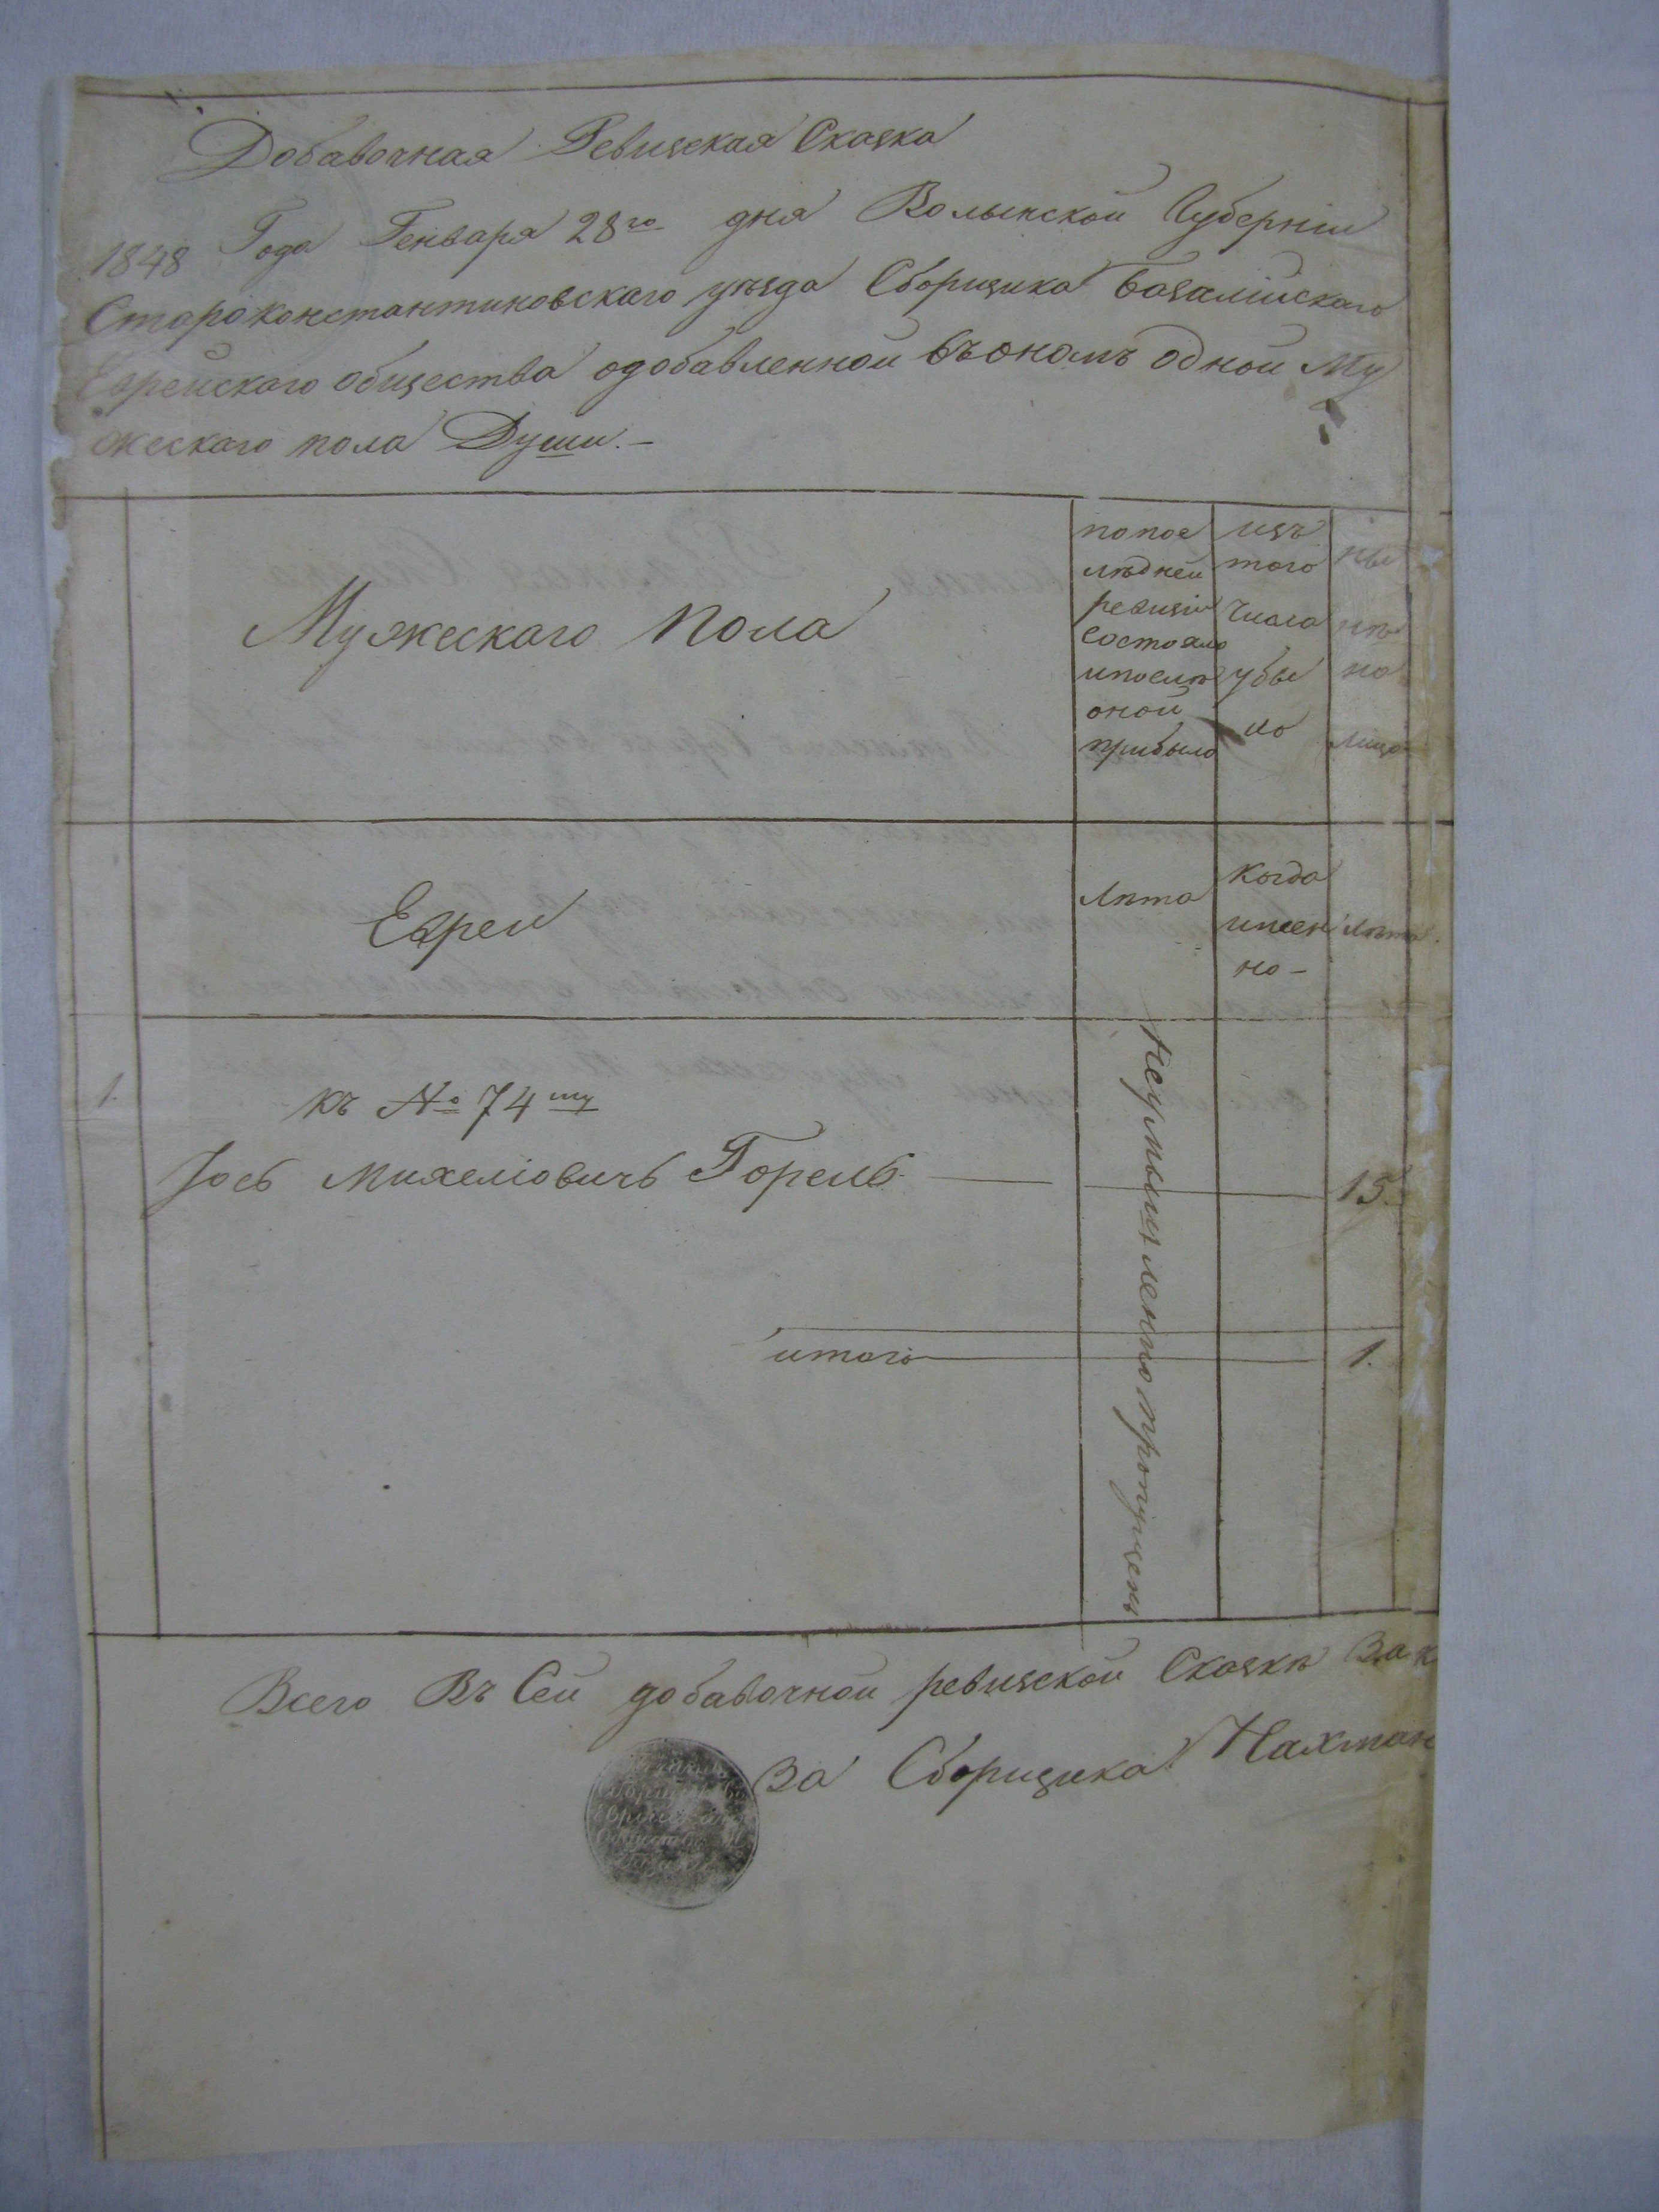 Добавочная Ревизская Сказка
1848 Года Генваря 28го дня Волынской Губерніи
Староконстантиновскаго уѣзда Сборщика Базалійскаго
Еврейскаго общества одобавленной въ ономъ одной Му
жескаго пола Души. –
Мужескаго пола
попос
лѣдней
ревизіи
состояло
ипослѣ
оной
прибыло
изъ
того
числа
убы
ло
ны
нѣ
на
лицо
Евреи
лѣта
когда
имен
но –
лѣта
1.
къ № 74му
Іось Михелiовичъ Горель
15.
Неумышленно пропущенъ
итого
1.
Всего Въ Сей добавочной ревизской Сказкѣ Зак
За Сборщика Нахман